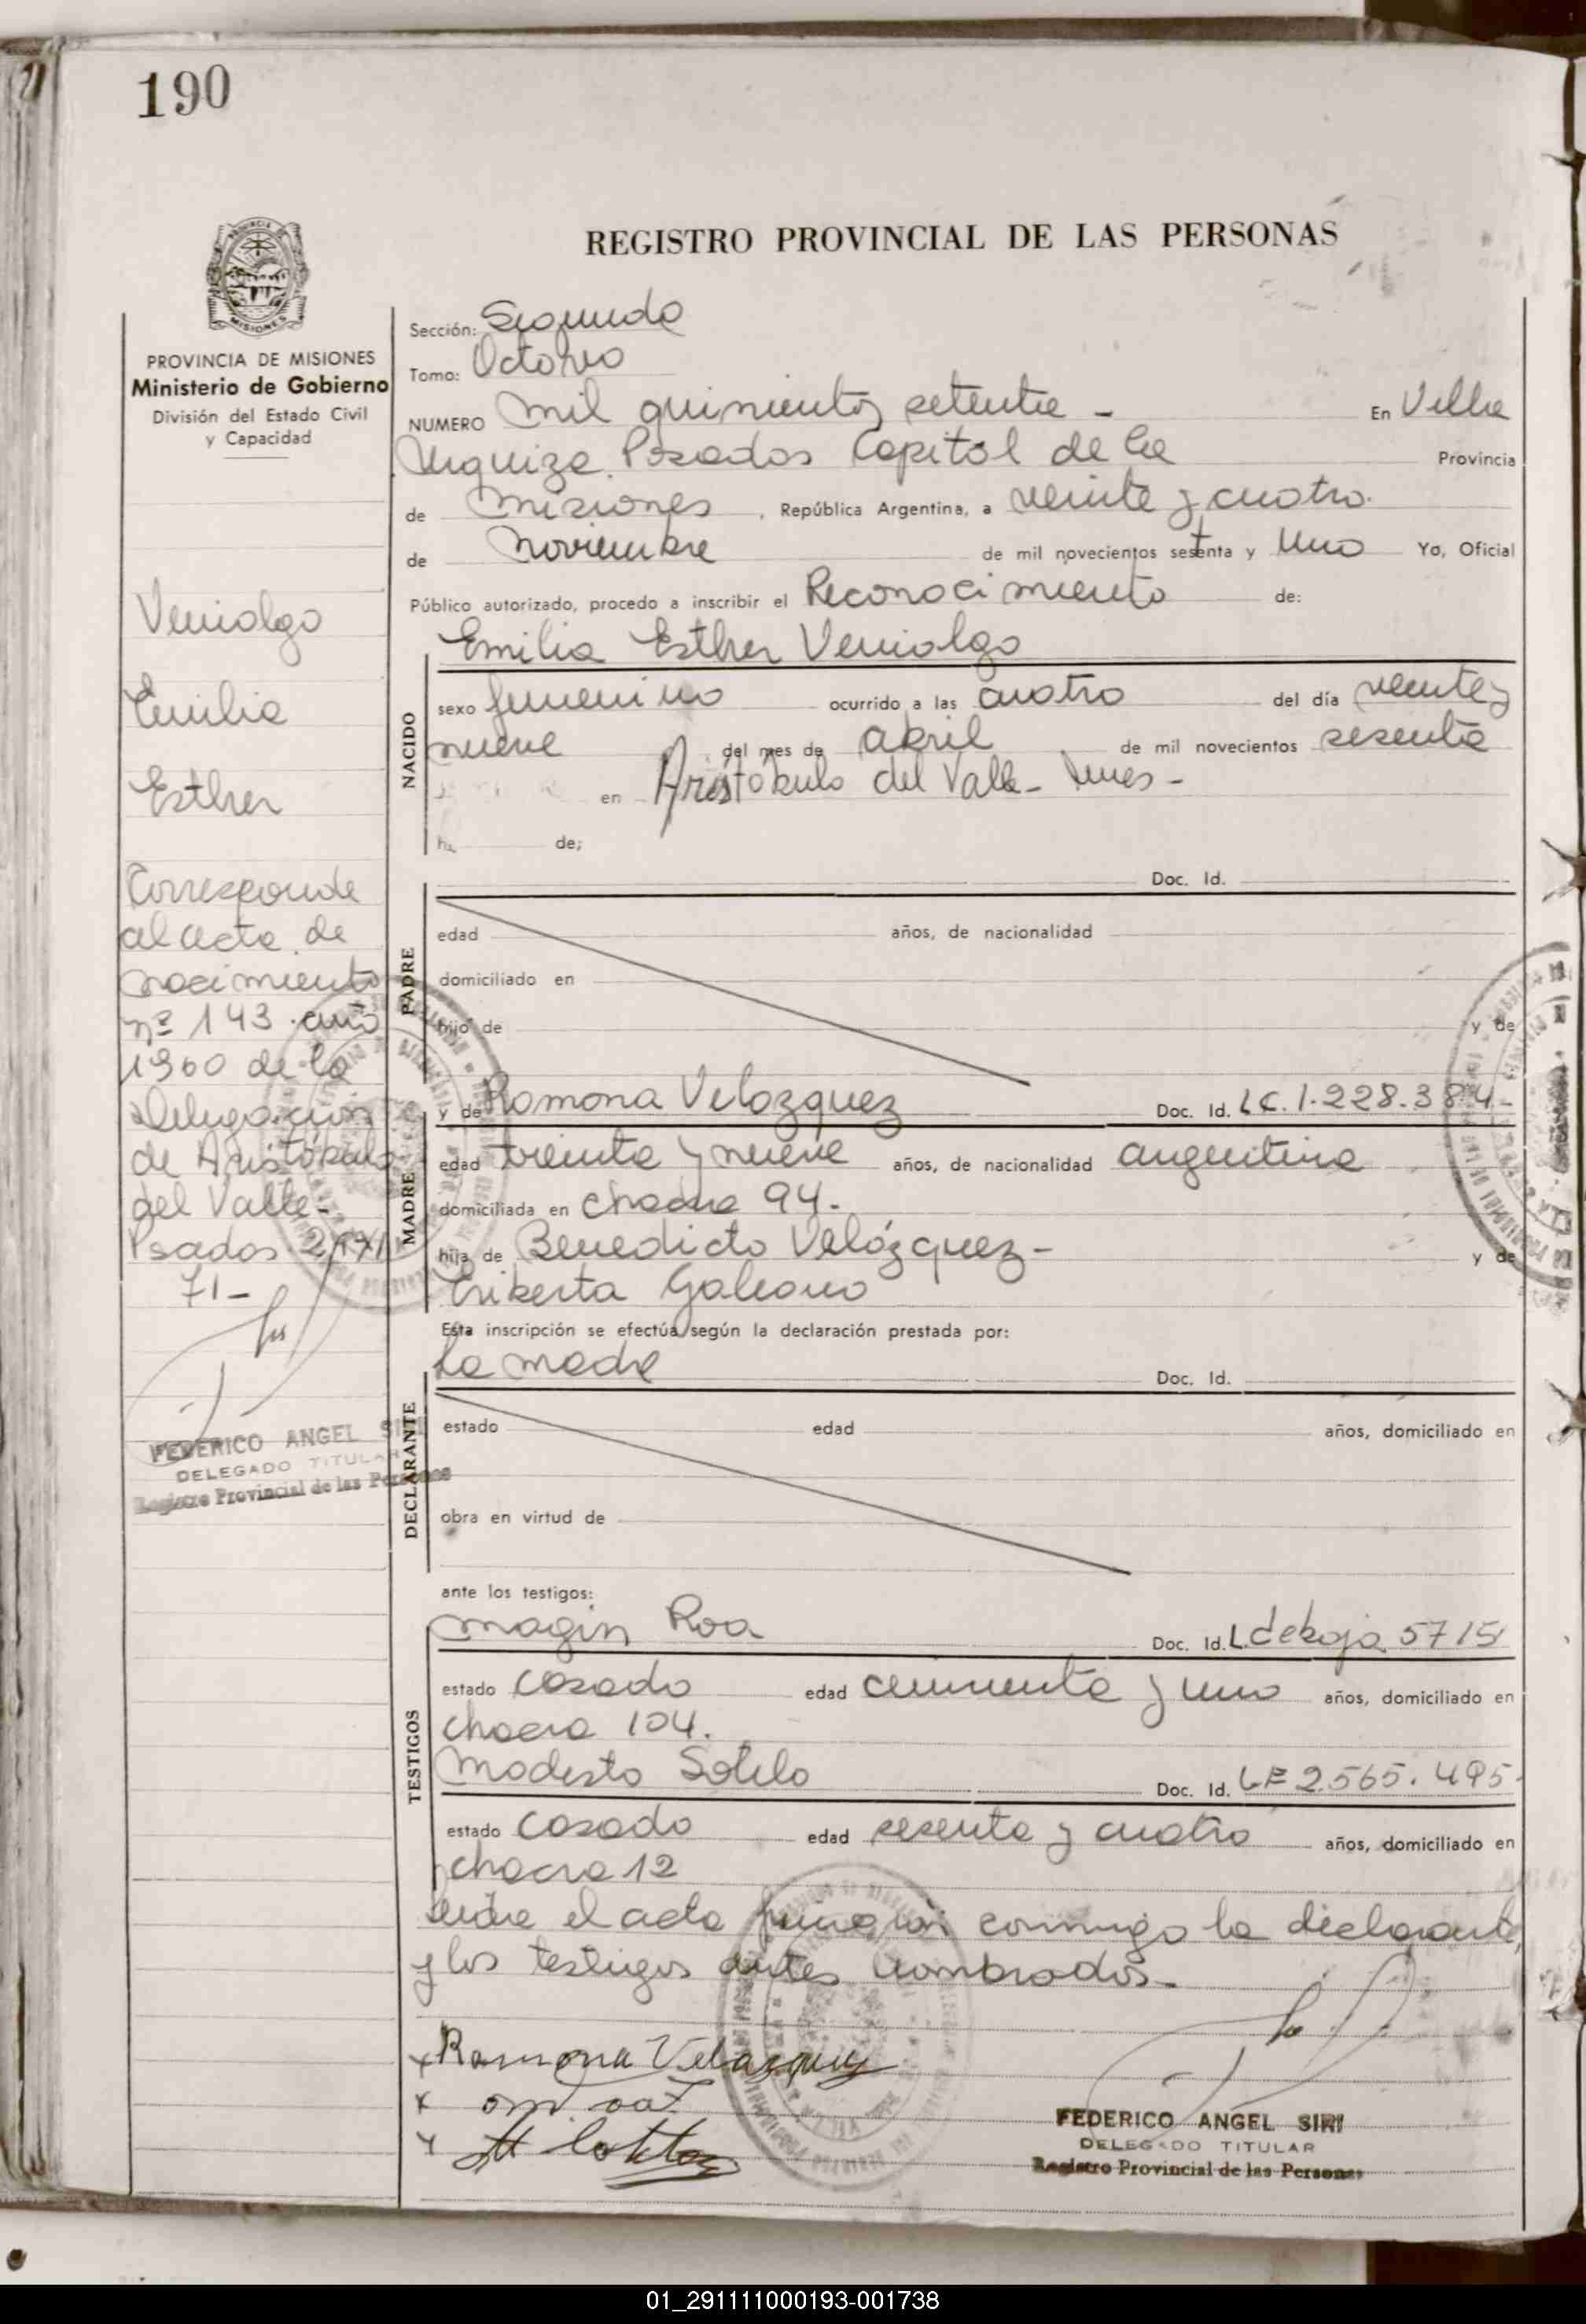 190
REGISTRO PROVINCIAL DE LAS PERSONAS
MISIONES
PROVINCIA DE MISIONES
Ministerio de Gobierno
División del Estado Civil
y Capacidad
Veniolgo
Emilia
Esther
Corresponde
al acta de
nacimiento
nº 143 año
1960 de la
Delegación
de Aristóbulo
del Valle-
Psadas
71-
FEDERICO ANGEL SIRI
DELEGADO TITULAR
Registro Provincial de las Personas
Sección: Segunda
Tomo: Octavo
NUMERO mil quinientos setenta - En Villa
Urquiza Posadas Capital de la Provincia
de Misiones, República Argentina, a veinte y cuatro.
de Noviembre de mil novecientos setenta y Uno Yo, Oficial
Público autorizado, procedo a inscribir el Reconocimiento de:
Emilia Esther Veniolgo
NACIDO
sexo femenino ocurrido a las cuatro del día veinte y
nueve del mes de abril de mil novecientos sesenta
en Aristóbulo del Valle-
de;
PADRE
Doc. Id.
edad años, de nacionalidad
domiciliado en
hijo de y de
MADRE
y de Ramona Velazquez Doc. Id. LC. 1.228.384-
edad treinta y nueve años, de nacionalidad argentina
domiciliada en chacra 94.
hija de Benedicto Velázquez- y de
Eriberta Galeano
Esta inscripción se efectúa según la declaración prestada por:
La madre Doc. Id.
DECLARANTE
estado edad años, domiciliado en
obra en virtud de
ante los testigos:
TESTIGOS
Magin Roa Doc. Id. 5715
estado casado edad cincuenta y uno años, domiciliado en
chacra 104.
Modesto Sotelo Doc. Id. LE 2.565.495-
estado casado edad sesenta y cuatro años, domiciliado en
chacra 12
Leída el acta firmaron conmigo la declarante,
y los testigos antes nombrados-
x Ramona Velazquez
x
x
FEDERICO ANGEL SIRI
DELEGADO TITULAR
Registro Provincial de las Personas
01_291111000193-001738